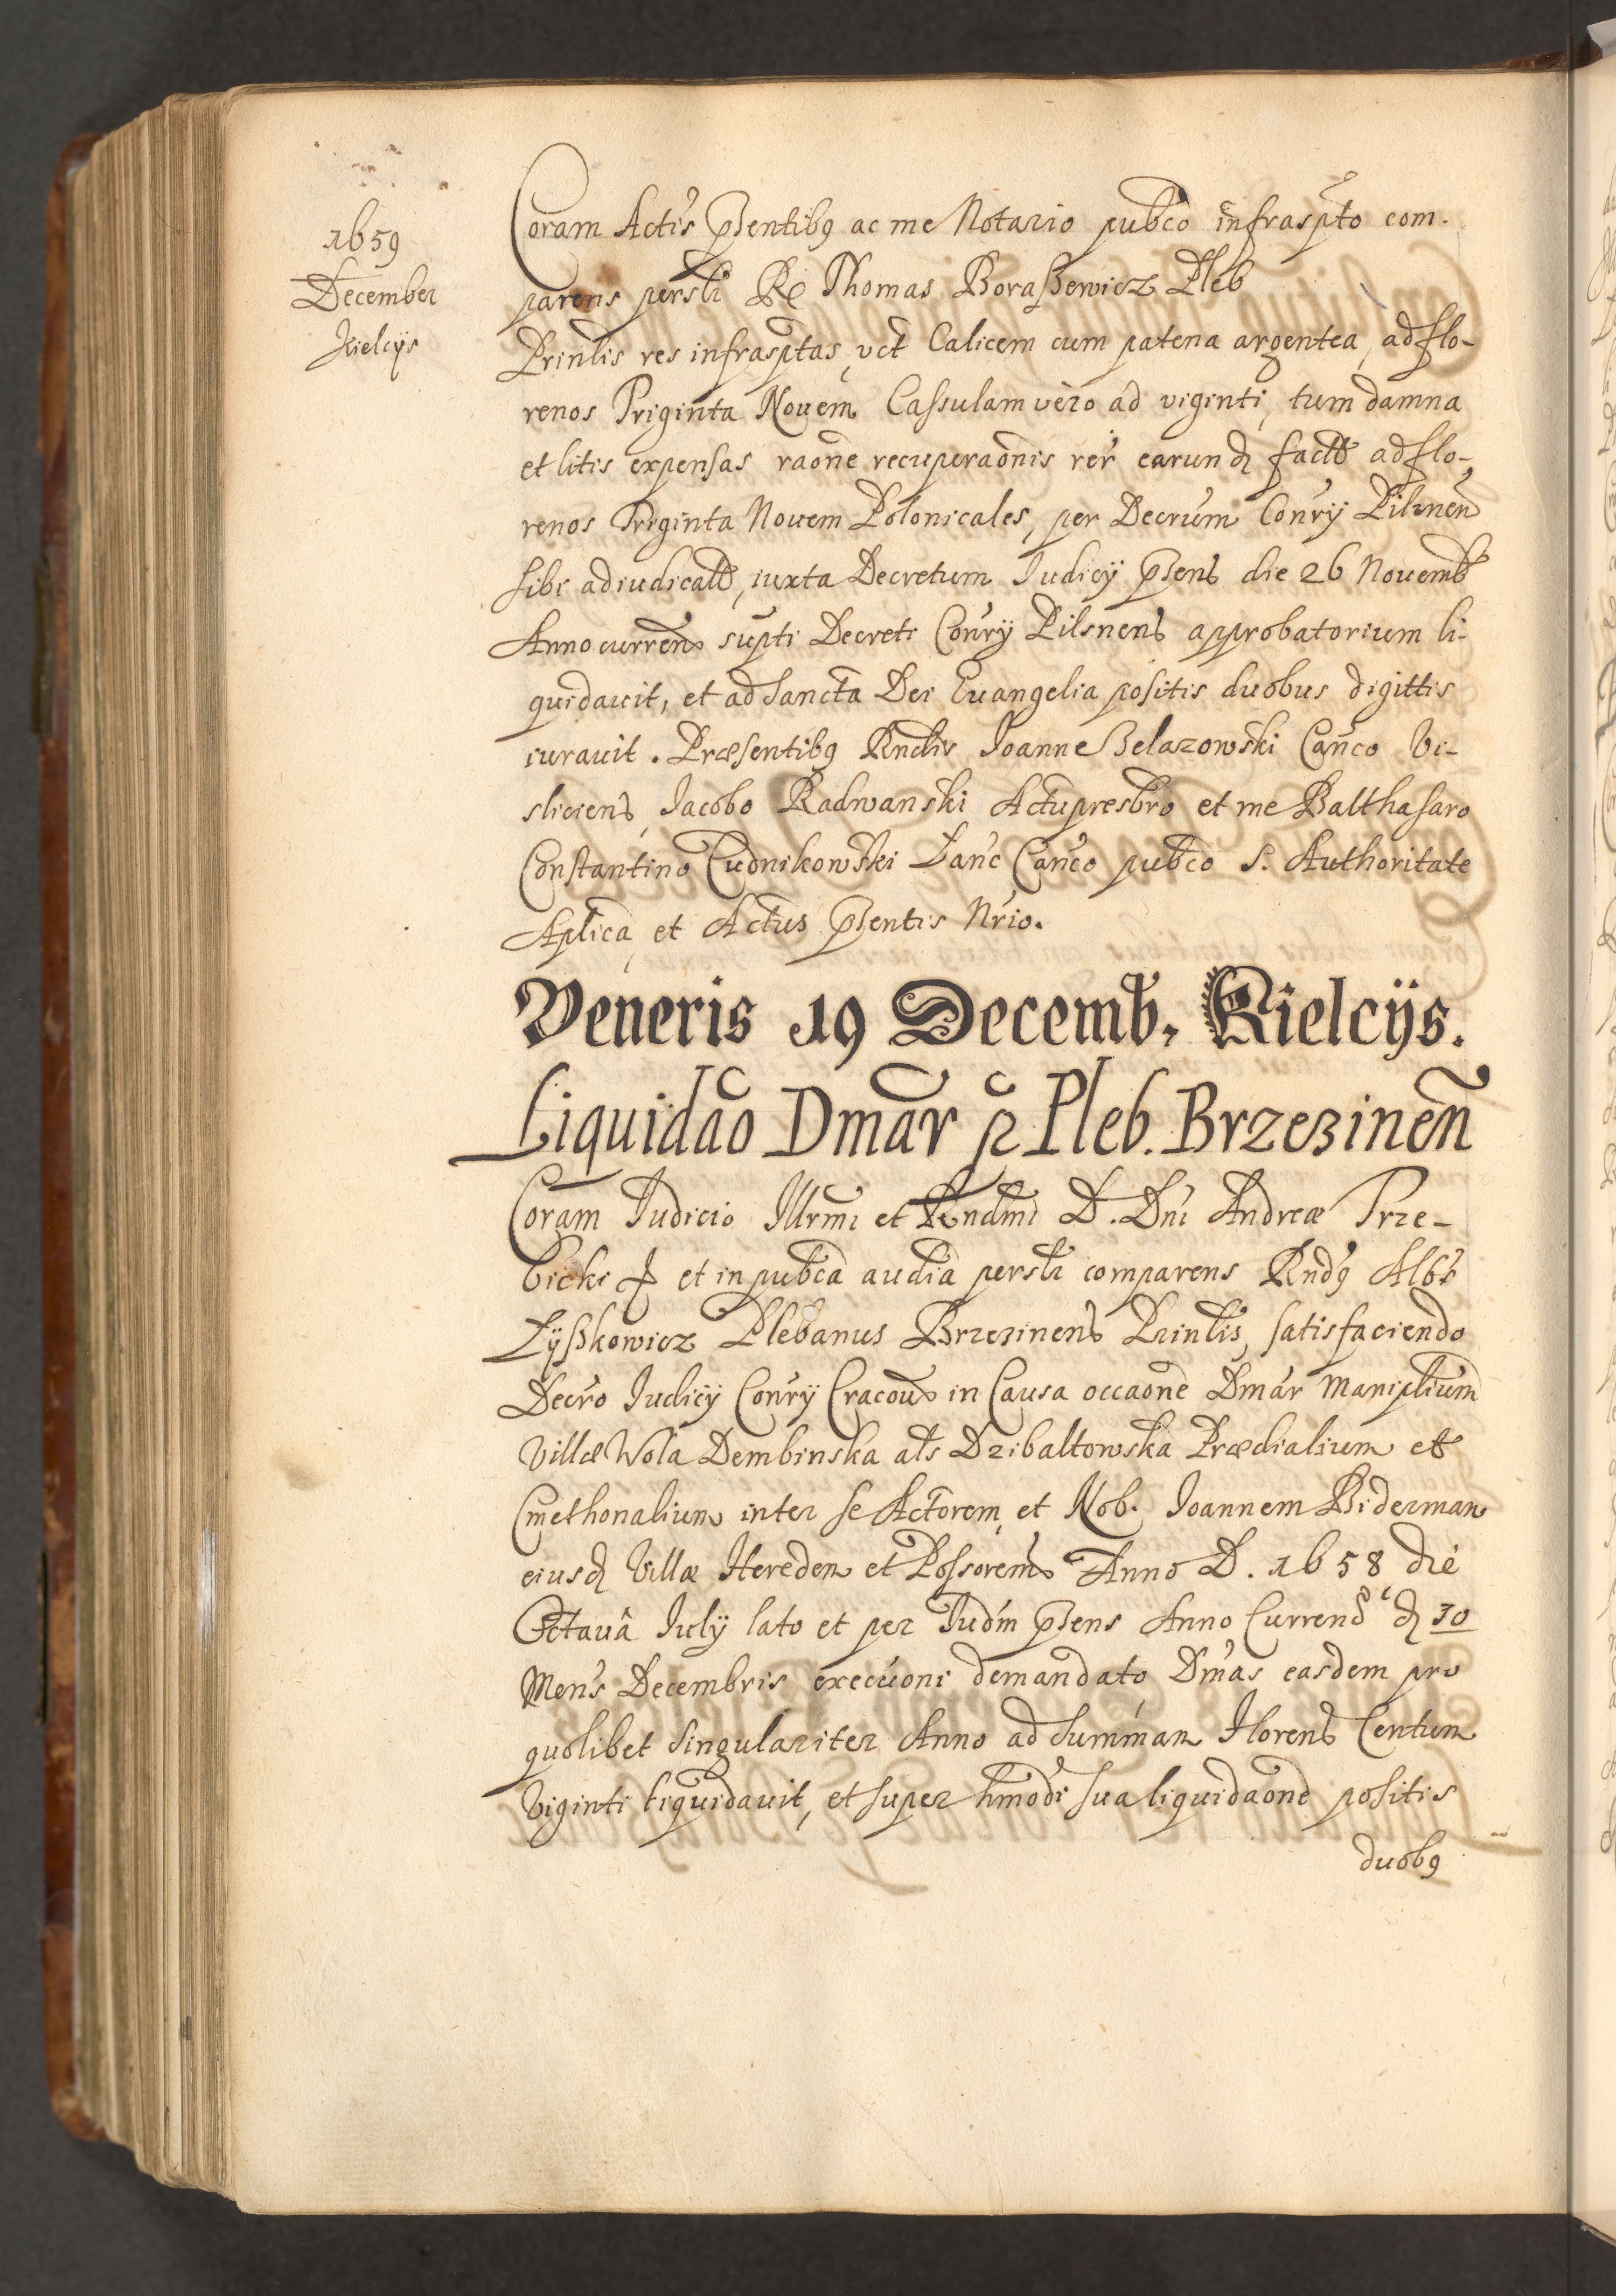 1659
December
Kielcijs
Coram Actis p̃sentibq ac me Notario pub̃co infrasp̃to com-
parens persl̃r R̃ Thomas Boraßewicz Pleb
Prinl̃is res infrasp̃tas, vc̃t Calicem cum patena argentea, ad flo-
renos Triginta Novem Cassulam vèro ad viginti, tum damna
et litis expensas raõne recuperaõnis rer̃ earundʒ factt ad flo-
renos Triginta Novem Polonicales, per Decrũm Coñrij Pilsneñ
sibi adiudicatt, iuxta Decretum Iudicij p̃sens die 26 Novemb
Anno curreñ sup̃ti Decreti Coñrij Pilsnens approbatorium li-
quidavit, et ad Sancta Dei Evangelia positis duobus digittis
iuravit. Præsentibq Rndis Ioanne Belazowski Cañco Vi-
sliciens, Iacobo Radwanski Actupresb̃ro et me Balthasaro
Constantino Cudnikowski Lanc Cañco pub̃co S. Authoritate
Apl̃ica et Actus p̃sentis Nr̃io.
Veneris 19 Decemb, Kielcijs.
Liquidão Dmãr p̱ Pleb. Brzezineñ
Coram Iudicio Illrm̃i et Rndm̃i D. Dñi Andreæ Trze-
bicki et in pub̃ca audia persl̃r comparens Rndq Albs
Łyßkowicz Plebanus Brzezinens Prinl̃is, satisfaciendo
Decr̃o Iudicij Coñrij Cracov in Causa occaõne Dmãr Manipl̃ium
Villæ Wola Dembinska al̃s Dzibaltowska Prædialium et
Cmethonalium inter se Actorem et Nob. Ioannem Biderman
eiusdʒ Villæ Heredem et Possorem Anno D. 1658 die
Octavâ Iulij lato et per Iudm̃ p̃sens Anno Currend dʒ 30
Mens Decembris execũoni demandato Dmãs easdem pro
quolibet singulariter Anno ad summam Florens Centum
Viginti liquidavit, et super hmõdi sua liquidaõne positis
duobq